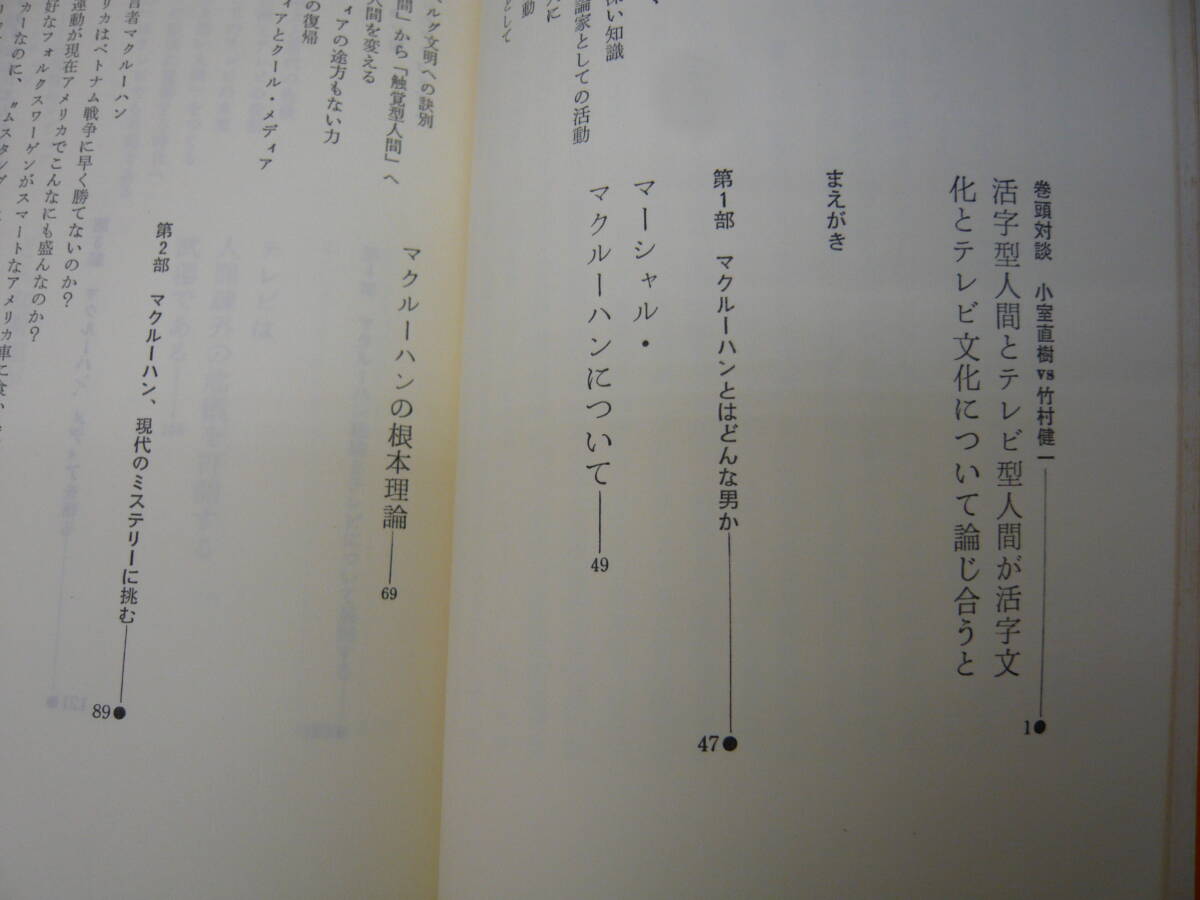 巻頭対談 小室直樹vs竹村健一 1
活字型人間とテレビ型人間が活字文
化とテレビ文化について論じ合うと
まえがき
第1部 マクルーハンとはどんな男か 47
マーシャル・
マクルーハンについて 49
深い知識
論家としての活動
人に
動
として
ベルグ文明への訣別
間」から「触覚型人間」へ
人間を変える
ィアの途方もない力
の復帰
ィアとクール・メディア
マクルーハンの根本理論 69
第2部 マクルーハン、現代のミステリーに挑む 89
言者マクルーハン
リカはベトナム戦争に早く勝てないのか?
運動が現在アメリカでこんなにも盛んなのか?
好なフォルクスワーゲンがスマートなアメリカ車に食い
カーなのに、〝ムスタング